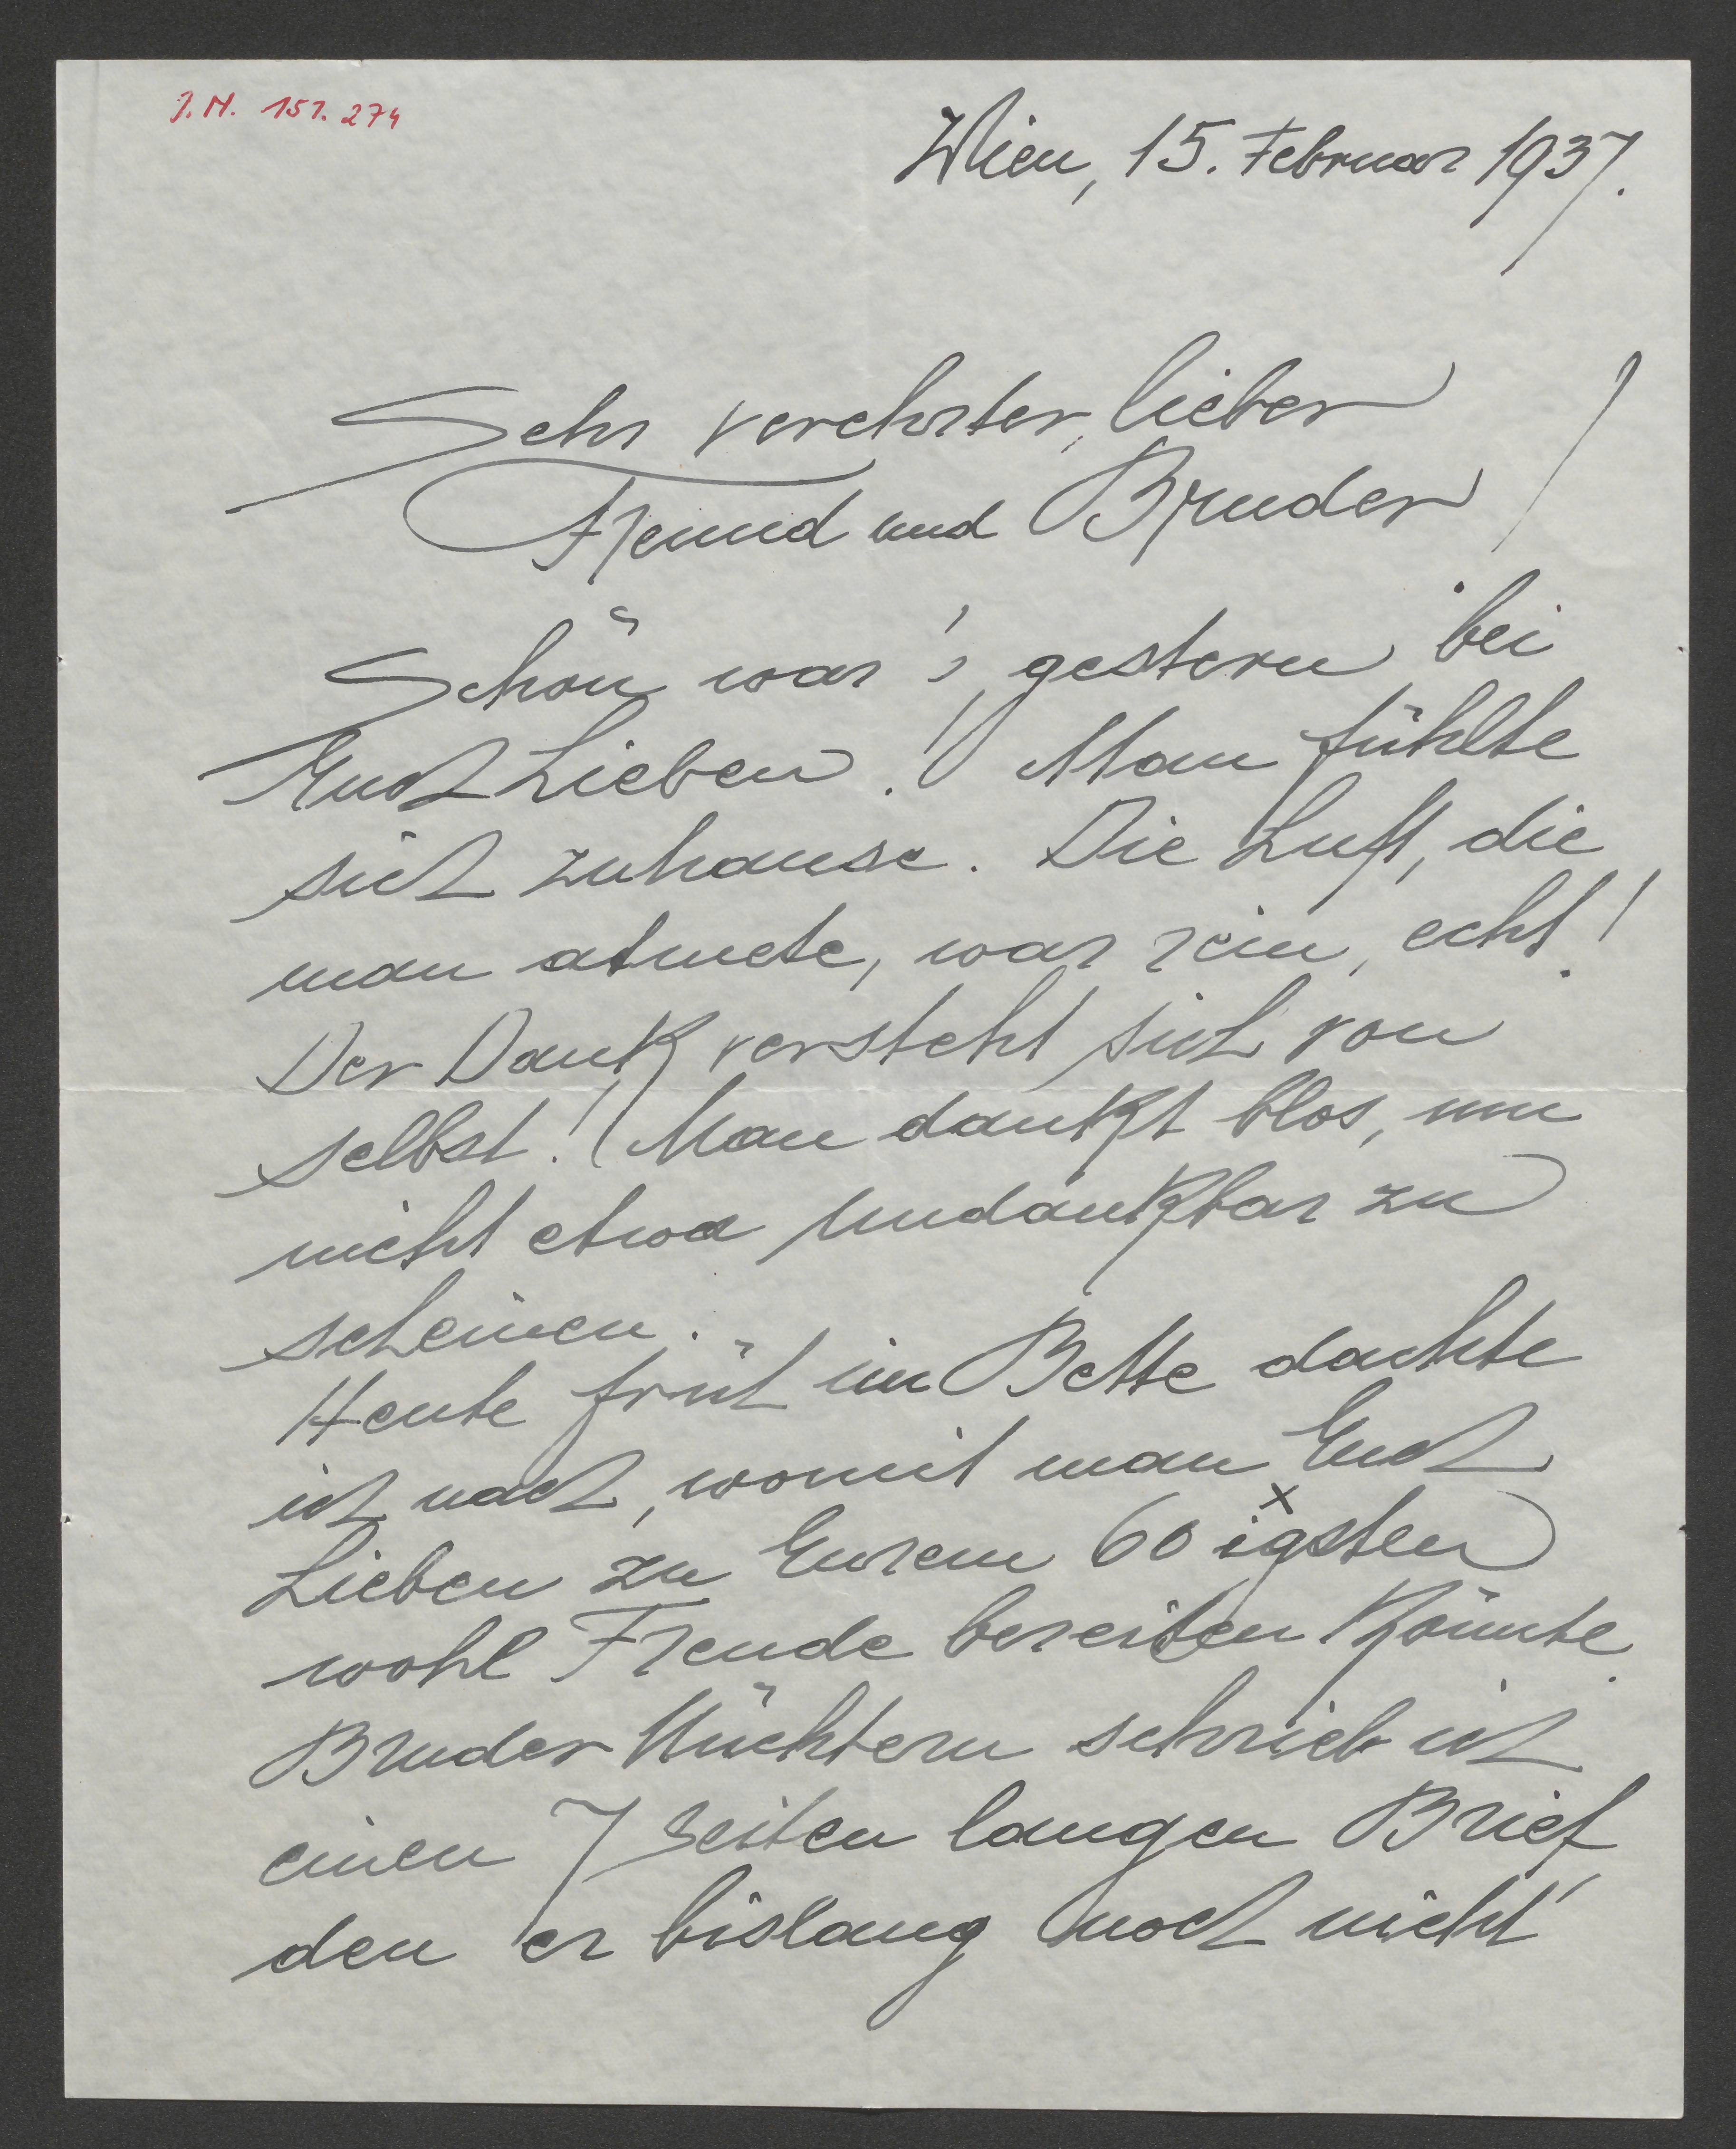 J.N. 151.274
Wien, 15. Februar 1937.
Sehr verehrter, lieber
Freund und Bruder!
Schön war's gestern bei
Euch Lieben! Man fühlte
sich zuhause. Die Luft, die
man atmete, war rein, echt!
Der Dank versteht sich von
selbst! Man dankt blos, um
nicht etwa undankbar zu
scheinen.
Heute früh im Bette dachte
ich nach, womit man Euch
Lieben zu Eurem 60 igsten x
wohl Freude bereiten könnte.
Bruder Nüchtern schrieb ich
einen 7 Seiten langen Brief,
den er bislang noch nicht